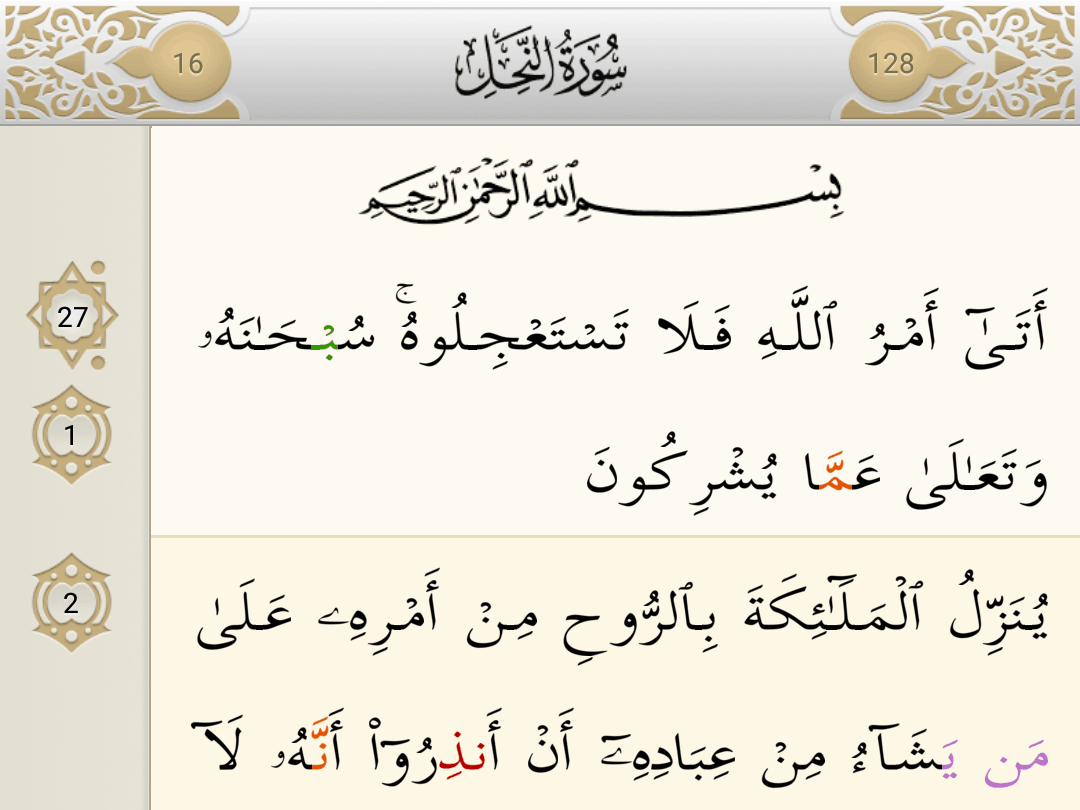 16
سُورَةُ النَّحْلِ
128
بِسْمِ ٱللَّهِ ٱلرَّحْمَٰنِ ٱلرَّحِيمِ
27
أَتَىٰٓ أَمْرُ ٱللَّهِ فَلَا تَسْتَعْجِلُوهُ ۚ سُبْحَـٰنَهُۥ
1
وَتَعَـٰلَىٰ عَمَّا يُشْرِكُونَ
2
يُنَزِّلُ ٱلْمَلَـٰٓئِكَةَ بِٱلرُّوحِ مِنْ أَمْرِهِۦ عَلَىٰ
مَن يَشَآءُ مِنْ عِبَادِهِۦٓ أَنْ أَنذِرُوٓا۟ أَنَّهُۥ لَآ